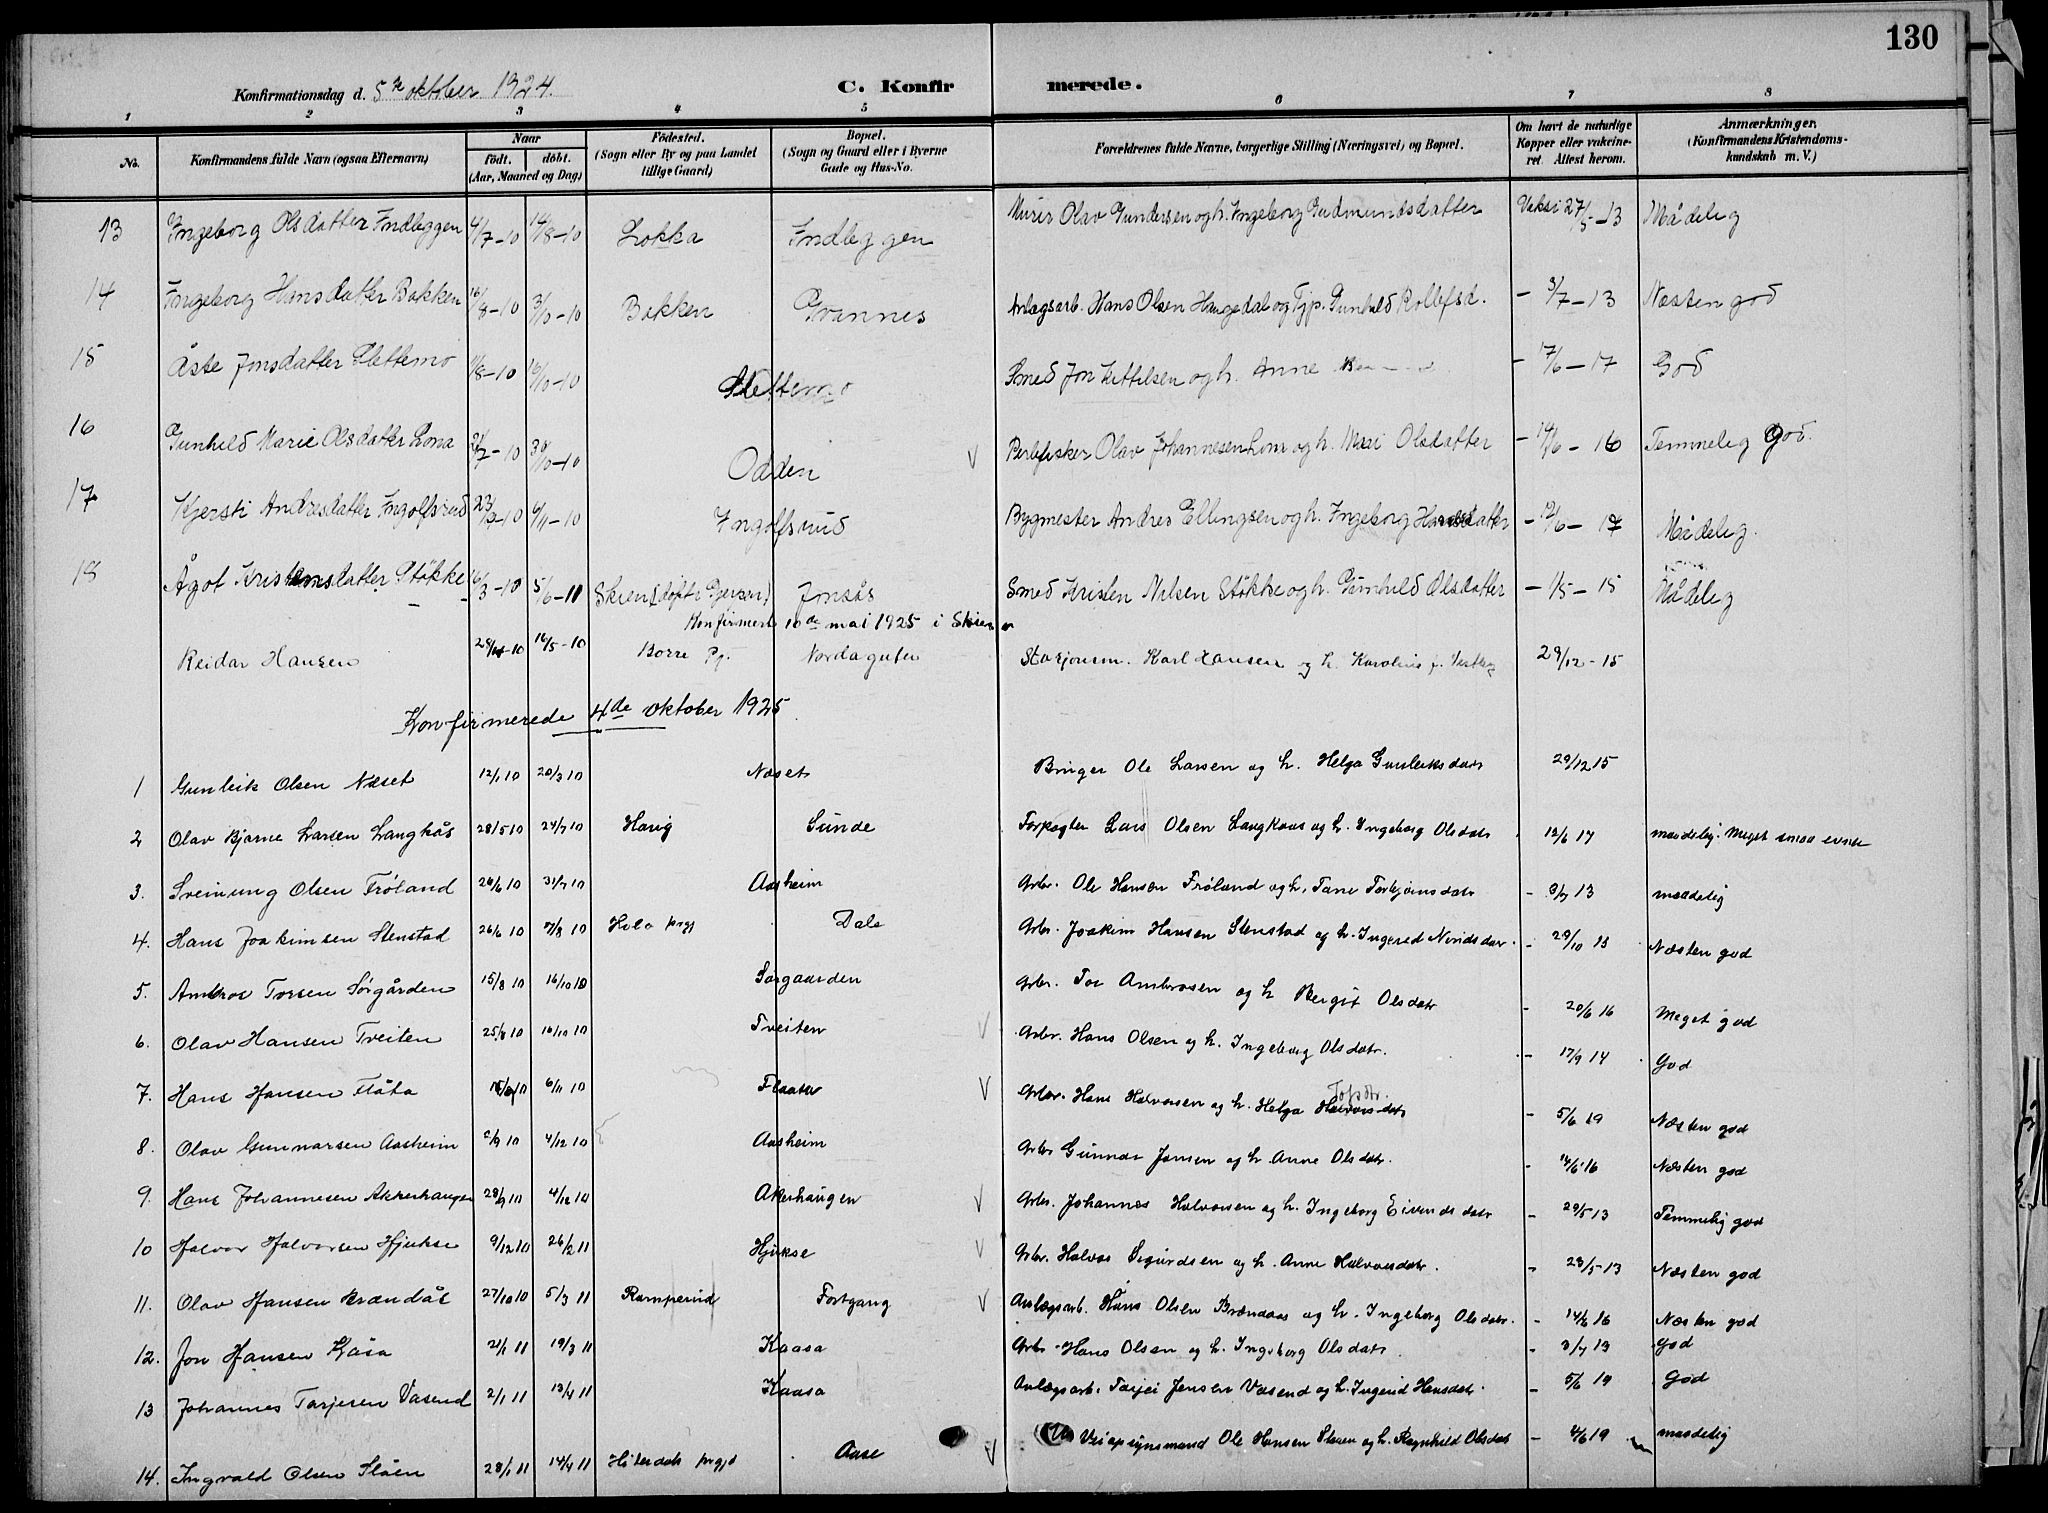 130
Konfirmationsdag d. 5te oktober 1924. C. Konfirmerede.
1 2 3 4 5 6 7 8
No. Konfirmandens fulde Navn (ogsaa Efternavn) Naar født. døbt. (Aar, Maaned og Dag) Fødested. (Sogn eller By og paa Landet tillige Gaard) Bopæl. (Sogn og Gaard eller i Byerne Gade og Hus-No. Forældrenes fulde Navne, borgerlige Stilling (Næringsvei) og Bopæl. Om havt de naturlige Kopper eller vakcineret. Attest herom. Anmærkninger. (Konfirmandens Kristendomskundskab m. V.)
13 Ingeborg Olsdatter Indleggen 4/7-10 14/8-10 Lokka Indleggen Murer Olav Gundersen og h. Ingeborg Gudmundsdatter Vaksi 27/5-13 Mådelig
14 Ingeborg Hansdatter Bakken 16/8-10 3/10-10 Bakken Grannes Anlægsarb. Hans Olsen Haugedal og Tjp. Gunhild Rollefsd. - 3/7-13 Næsten god
15 Åste Jonsdatter Slettemo 11/8-10 16/10-10 Slettemo Smed Jon Kettilsen og h. Anne - 17/6-17 God
16 Gunhild Marie Olsdatter Lona 21/7-10 30/10-10 Odden V Perlefisker Olav Johannesen Lona og h. Mari Olsdatter - 14/6-16 Temmelig God.
17 Kjersti Andresdatter Ingolfsrud 23/9-10 6/11-10 Ingolfsrud Bygmester Andres Ellingsen og h. Ingeborg Hansdatter - 12/6-17 Mådelig.
18 Ågot Kristensdatter Støkke 16/3-10 5/6-11 Skien (døpt Gjerpen) Jonsås Smed Kristen Nilsen Støkke og h. Gunhild Olsdatter - 1/5-15 Mådelig
Konfirmert 10de mai 1925 i Skien
Reidar Hansen 16/5-10 Borre Pg. Nordagutu Stasjonsm. Karl Hansen og h. Karoline f. 29/12-15
Konfirmerede 4de oktober 1925
1 Gunleik Olsen Næset 12/1 10 20/3 10 Næset Bruger Ole Larsen og h. Helga Gunleiksdatr 29/12 15
2 Olav Bjarne Larsen Langkås 28/5 10 24/7 10 Haug Sunde Forpagter Lars Olsen Langkaas og h. Ingeborg Olsdatr - 12/6 17 maadelig. Meget smaa evner
3. Sveinung Olsen Frøland 26/6 10 31/7 10 Aasheim Arbr. Ole Hansen Frøland og h. Tone Torbjørnsdatr - 3/7 13 maadelig
4. Hans Joakimsen Stenstad 26/6 10 7/8 10 Hola prgj Dale Arbr. Joakim Hansen Stenstad og h. Ingerid - 29/10 15 Næsten god
5. Ambros Torsen Sørgården 15/8 10 16/10 10 Sørgaarden Arbr. Tor Ambrosen og h Bergit Olsdatr - 20/6 16 Meget god
6. Olav Hansen Tveiten 25/8 10 16/10 10 Tveiten V Arbr. Hans Olsen og h. Ingeborg Olsdatr. - 17/9 14 God
7. Hans Hansen Flåta 6/11 10 Flaata V Arbr. Hans Halvorsen og h. Helga Halvorsdatr - 5/6 19 Næsten god
8. Olav Gunnarsen Aasheim 2/9 10 4/12 10 Aasheim Arbr Gunnar Jonsen og h Anne Olsdatr. - 14/6 16 Næsten god
9. Hans Johannesen Akkerhaugen 28/9 10 4/12 10 Akerhaugen V Arbr. Johannes Halvorsen og h. Ingeborg Eivindsdatr - 29/5 13 Temmelig god
10 Halvor Halvorsen Hjukse 9/12 10 26/2 11 Hjukse V Arbr. Halvor Sigurdsen og h. Anne Halvorsdatr. - 29/5-13 Næsten god
11. Olav Hansen Brændås 27/10 10 5/3 11 Ramperud Fortgang V Anlægsarb. Hans Olsen Brændaas og h. Ingeborg Olsdatr. - 14/6 16 Næsten god
12. Jon Hansen Kåsa 21/1 11 19/3 11 Kaasa Arbr. Hans Olsen og h. Ingeborg Olsdatr. - 3/7 13 God
13 Johannes Tarjesen Vasend 2/1 11 13/4 11 Kaasa Anlægsarb. Tarjei Jensen Vasend og h. Ingerid Hansdatr. - 5/6 19 God
14. Ingvald Olsen Slåen 28/1 11 14/4 11 Hiterdals prgjd Aase V Veiopsynsmand Ole Hansen Slaaen og h. Ragnhild Olsdatr - 4/6 19 maadelig